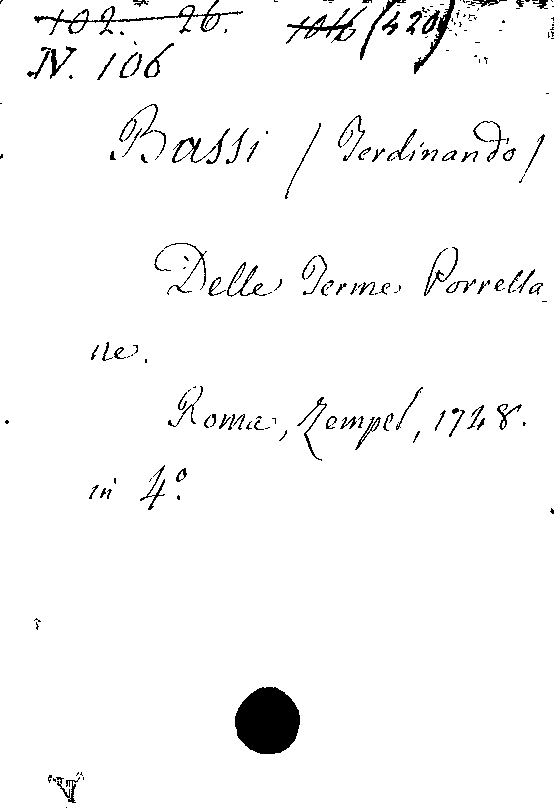 102. 26. 1016 (420)
N. 106
Bassi / Ferdinando /
Delle Terme Porretta
ne.
Roma, Zempel, 1748.
in 4º.